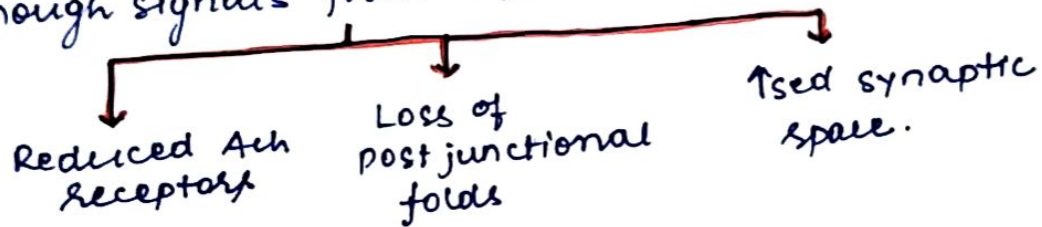 hough signals
Reduced Ach
receptors
Loss of
post junctional
folds
↑sed synaptic
space.